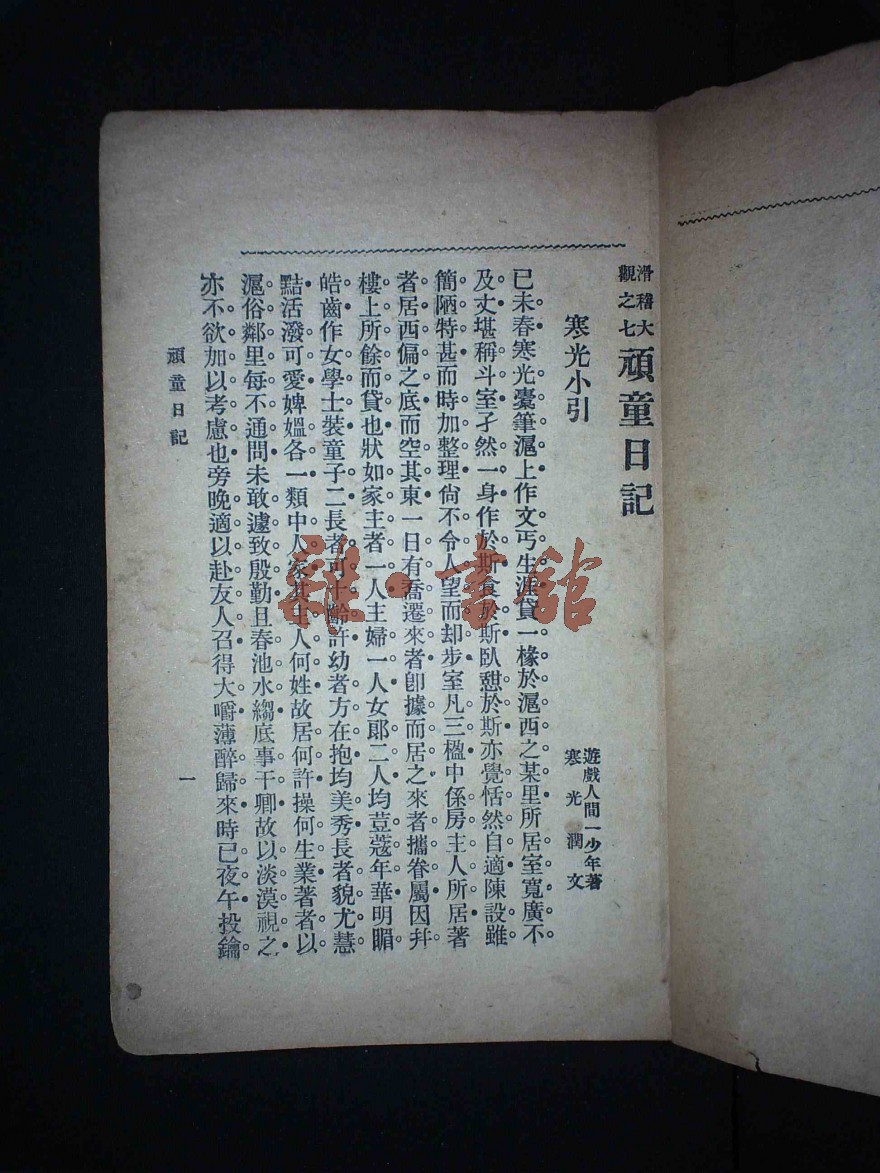 滑稽大
觀之七
頑童日記
寒光小引
遊戲人間一少年著
寒光潤文
已未春寒光橐筆滬上作文丐生涯貸一椽於滬西之某里所居室寬廣不
及丈堪稱斗室孑然一身作於斯食於斯臥憇於斯亦覺恬然自適陳設雖
簡陋特甚而時加整理尙不令人望而却步室凡三楹中係房主人所居著
者居西偏之底而空其東一日有喬遷來者卽據而居之來者攜眷屬因幷
樓上所餘而貸也狀如家主者一人主婦一人女郞二人均荳蔻年華明眉
皓齒作女學士裝童子二長者可十齡許幼者方在抱均美秀長者貌尤慧
黠活潑可愛婢媼各一類中人家其主人何姓故居何許操何生業著者以
滬俗鄰里每不通問未敢遽致殷勤且春池水縐底事干卿故以淡漠視之
亦不欲加以考慮也旁晚適以赴友人召得大嚼薄醉歸來時已夜午投鑰
頑童日記
一
雜·書館